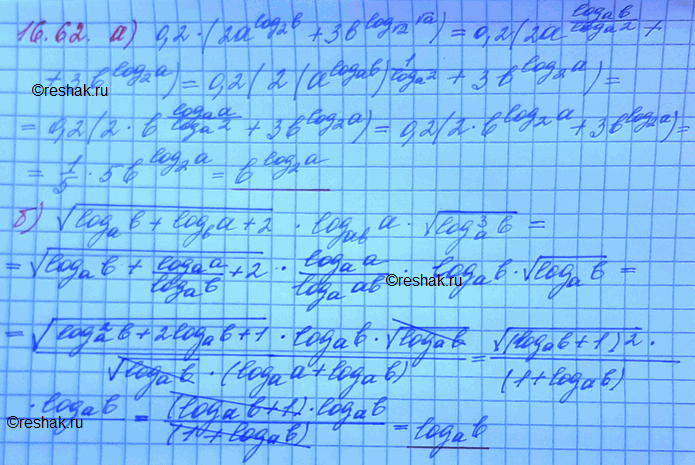 16.62. а) 0,2·(2a^{log_2 b} + 3b^{log_{√2} √a}) = 0,2(2a^{\frac{log_a b}{log_a 2}} +
+ 3b^{log_2 a}) = 0,2(2(a^{log_a b})^{\frac{1}{log_a 2}} + 3b^{log_2 a}) =
©reshak.ru
©reshak.ru
= 0,2(2·b^{\frac{log_a a}{log_a 2}} + 3b^{log_2 a}) = 0,2(2·b^{log_2 a} + 3b^{log_2 a}) =
= \frac{1}{5}·5b^{log_2 a} = b^{log_2 a}
б) √(log_a b + log_b a + 2) · log_{ab} a · √(log_a^3 b) =
= √(log_a b + \frac{log_a a}{log_a b} + 2) · \frac{log_a a}{log_a ab} · log_a b · √(log_a b) =
= \frac{√(log_a^2 b + 2log_a b + 1) · log_a b · √(log_a b)}{√(log_a b) · (log_a a + log_a b)} = \frac{√((log_a b + 1)^2) ·}{(1 + log_a b)}
©reshak.ru
©reshak.ru
· log_a b = \frac{(log_a b + 1) · log_a b}{(1 + log_a b)} = log_a b